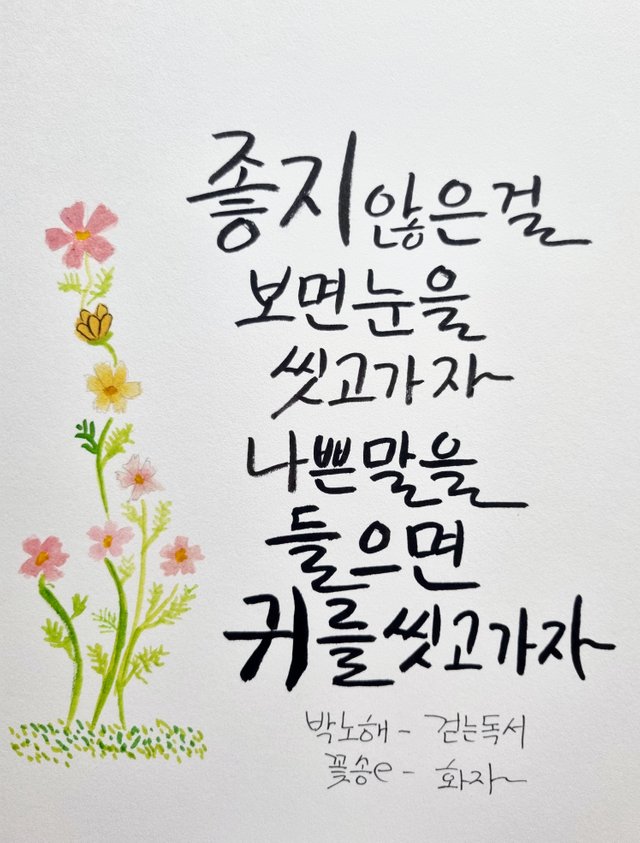 좋지 않은 걸
보면 눈을
씻고 가자
나쁜 말을
들으면
귀를 씻고 가자
박노해 - 걷는 독서
꽃송e - 화자